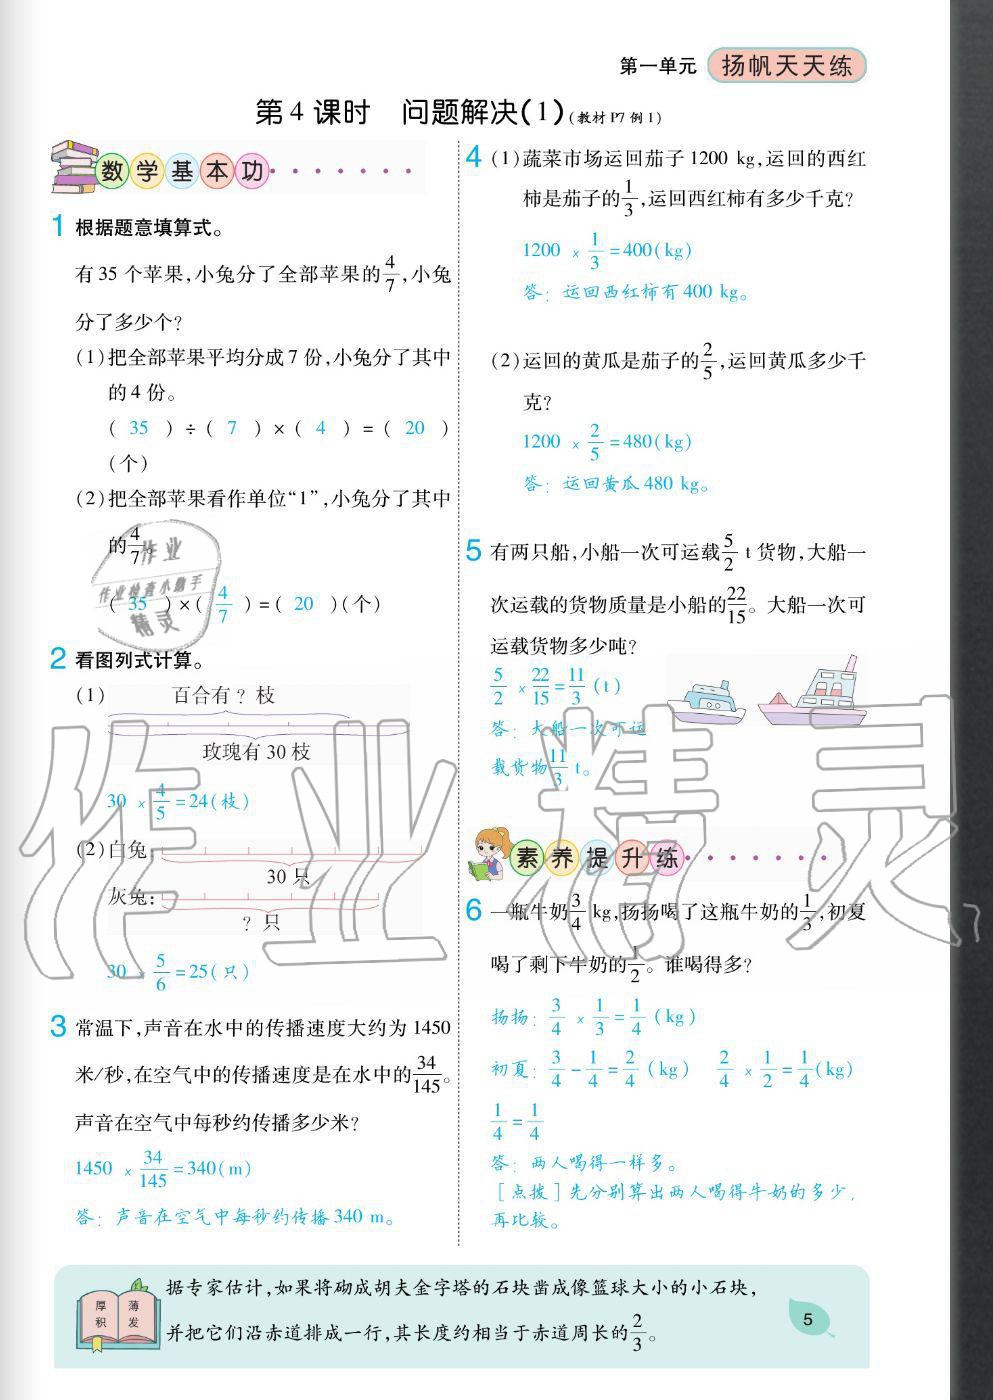 第一单元 扬帆天天练
第 4 课时 问题解决(1)(教材 P7 例 1)
数学基本功
1 根据题意填算式。
有 35 个苹果,小兔分了全部苹果的4/7,小兔
分了多少个?
(1)把全部苹果平均分成 7 份,小兔分了其中
的 4 份。
( 35 )÷( 7 )×( 4 )=( 20 )
(个)
(2)把全部苹果看作单位“1”,小兔分了其中
的4/7。
( 35 )×( 4/7 )=( 20 )(个)
2 看图列式计算。
(1) 百合有 ? 枝
玫瑰有 30 枝
30 × 4/5 =24(枝)
(2)白兔:
30 只
灰兔:
? 只
30 × 5/6 =25(只)
3 常温下,声音在水中的传播速度大约为 1450
米/秒,在空气中的传播速度是在水中的34/145。
声音在空气中每秒约传播多少米?
1450 × 34/145 =340(m)
答:声音在空气中每秒约传播 340 m。
4 (1)蔬菜市场运回茄子 1200 kg,运回的西红
柿是茄子的1/3,运回西红柿有多少千克?
1200 × 1/3 =400(kg)
答:运回西红柿有 400 kg。
(2)运回的黄瓜是茄子的2/5,运回黄瓜多少千
克?
1200 × 2/5 =480(kg)
答:运回黄瓜 480 kg。
5 有两只船,小船一次可运载5/2 t 货物,大船一
次运载的货物质量是小船的22/15。大船一次可
运载货物多少吨?
5/2 × 22/15 = 11/3 (t)
答:大船一次可运
载货物11/3 t。
素养提升练
6 一瓶牛奶3/4 kg,扬扬喝了这瓶牛奶的1/3,初夏
喝了剩下牛奶的1/2。谁喝得多?
扬扬:3/4 × 1/3 = 1/4 (kg)
初夏:3/4 - 1/4 = 2/4 (kg) 2/4 × 1/2 = 1/4 (kg)
1/4 = 1/4
答:两人喝得一样多。
[点拨]先分别算出两人喝得牛奶的多少,
再比较。
厚积薄发
据专家估计,如果将砌成胡夫金字塔的石块凿成像篮球大小的小石块,
并把它们沿赤道排成一行,其长度约相当于赤道周长的2/3。
5
作业
作业检查小助手
精灵
作业精灵